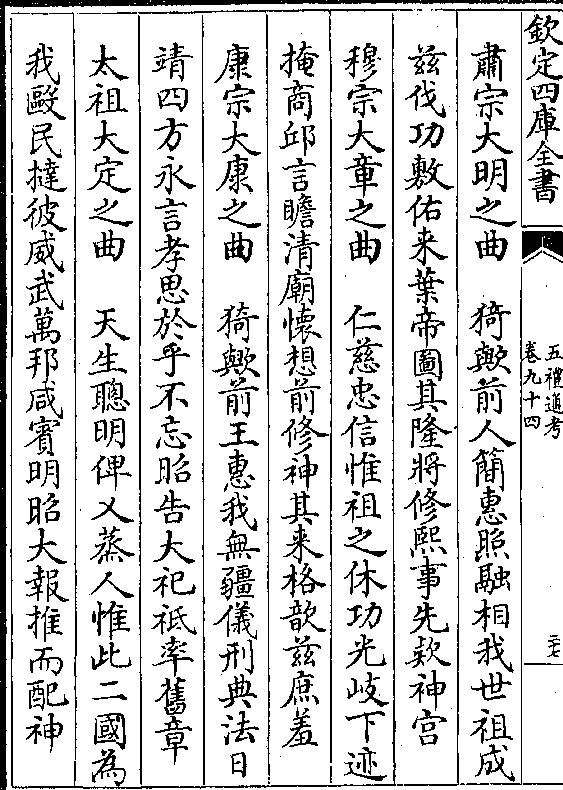 欽定四庫全書
五禮通考
卷九十四
二七
肅宗大明之曲　猗歟前人簡惠昭融相我世祖成
兹伐功敷佑来葉帝圖其隆將修熙事先欵神宫
穆宗大章之曲　仁慈忠信惟祖之休功光岐下迹
掩商邱言瞻清廟懷想前修神其来格歆兹庶羞
康宗大康之曲　猗歟前王惠我無疆儀刑典法日
靖四方永言孝思於乎不忘昭告大祀祗率舊章
太祖大定之曲　天生聰明俾乂蒸人惟此二國為
我敺民撻彼威武萬邦咸賓明昭大報推而配神